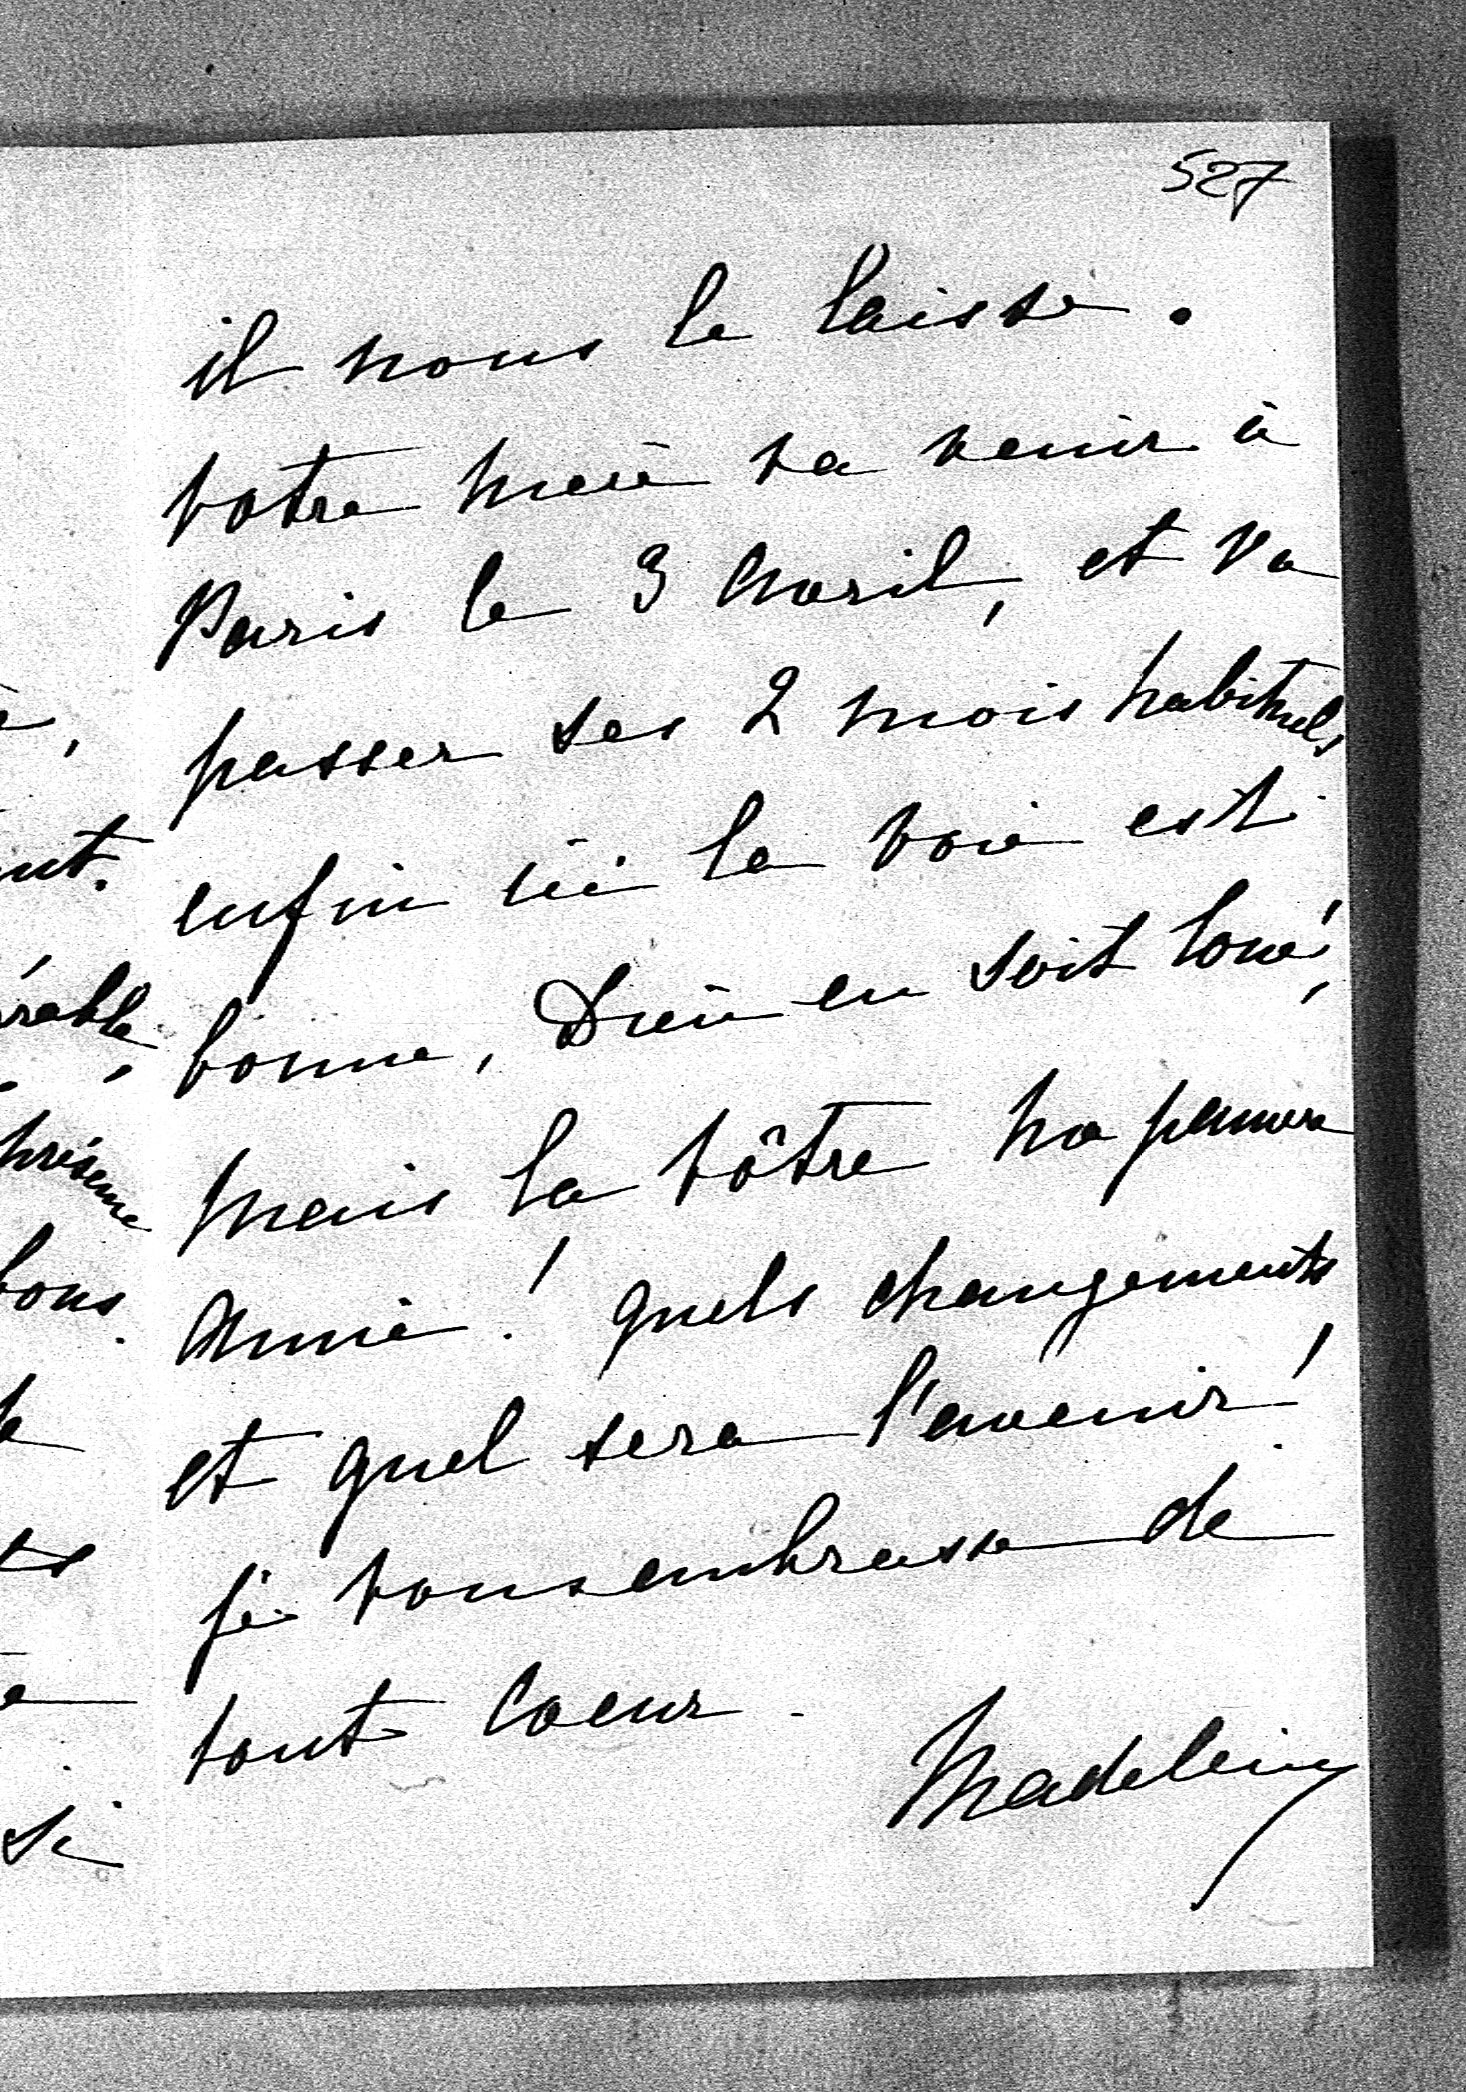 527
il nous le laisse.
votre mère va venir à
Paris le 3 Avril, et va
passer ses 2 mois habituels,
enfin ici la voie est
bonne, Dieu en soit loué!,
mais la vôtre ma pauvre
Annie! quels changements
et quel sera l'avenir!
je vous embrasse de
tout coeur.
Madeleine